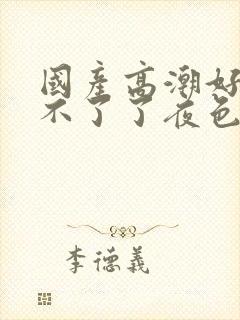 國產高潮好
不了了夜色
李德義